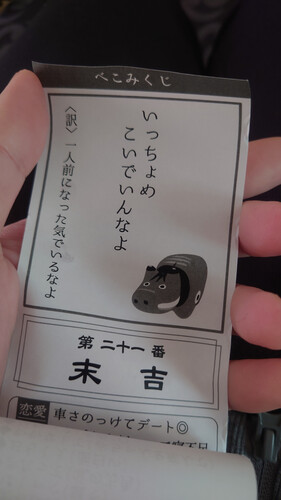 べこみくじ
いっちょめ
こいでいんなよ
〈訳〉一人前になった気でいるなよ
第二十一番
末吉
恋愛 車さのっけてデート◎